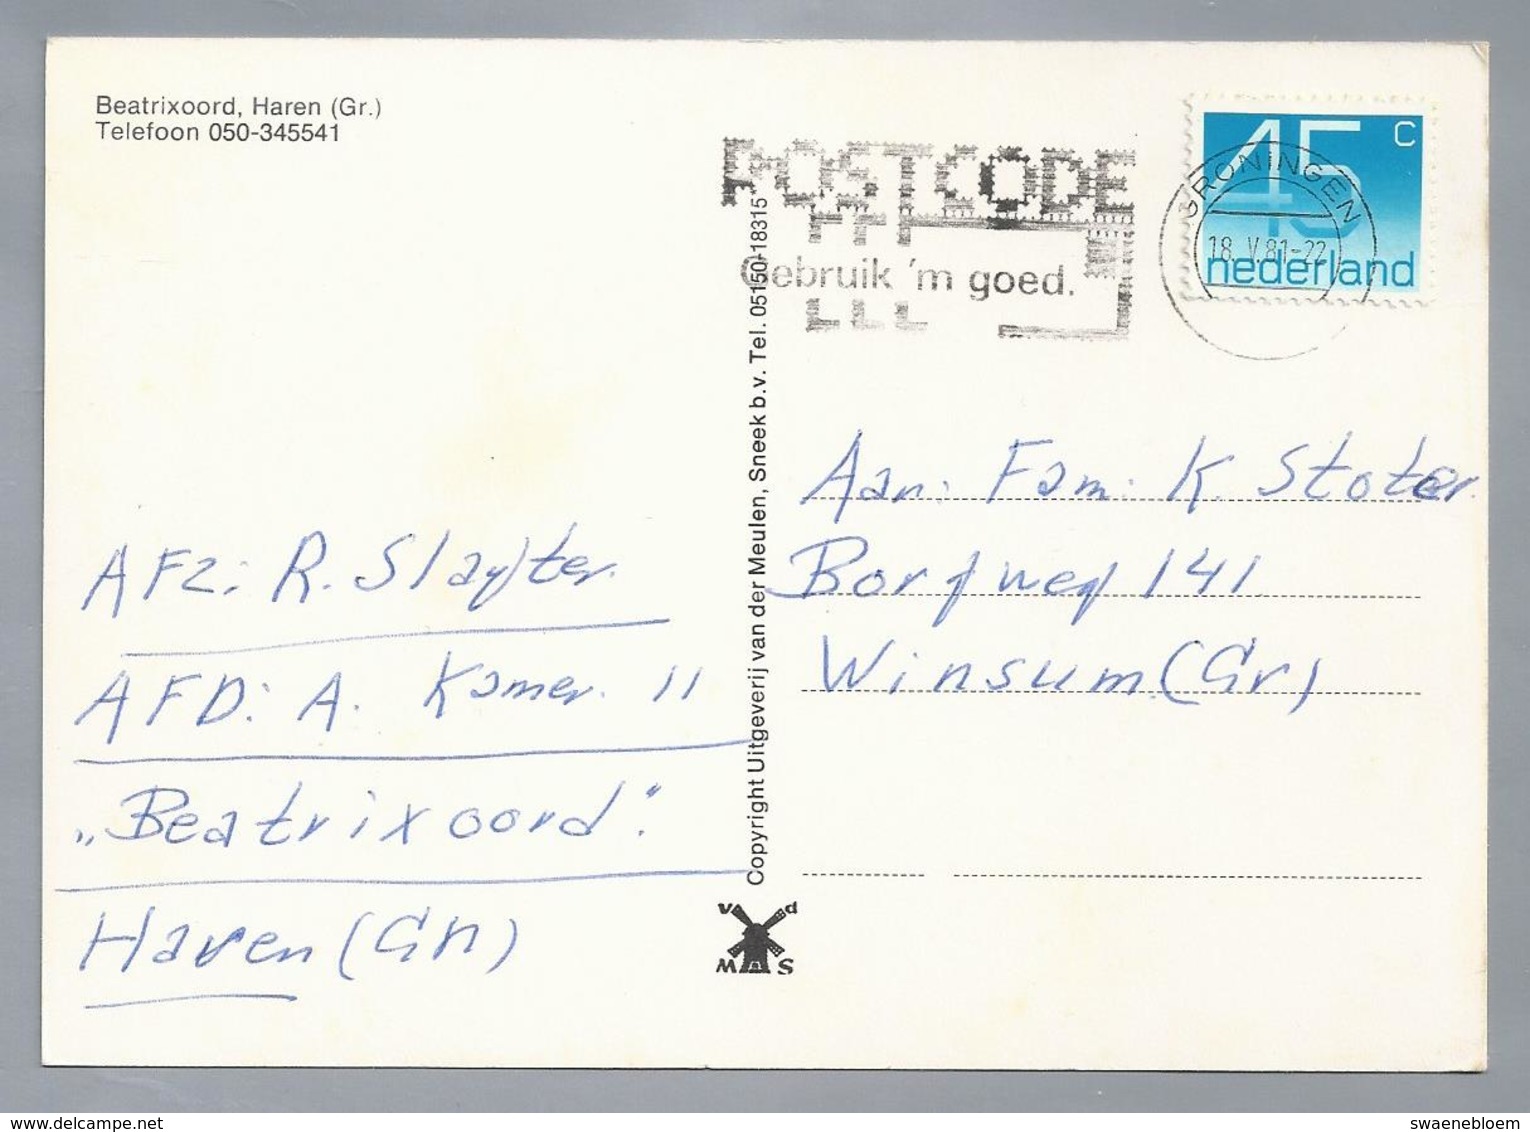 Beatrixoord, Haren (Gr.)
Telefoon 050-345541
POSTCODE
Gebruik 'm goed.
45 c
nederland
GRONINGEN
18. V.81-22
Copyright Uitgeverij van der Meulen, Sneek b.v. Tel. 05150-18315*
AFz: R. Slayter.
AFD: A. Kamer. 11
„Beatrixoord".
Haren (Gn)
Aan: Fam: K. Stoter.
Borgweg 141.
Winsum. (Gr)
v d
M S
delcampe.net
swaenebloem